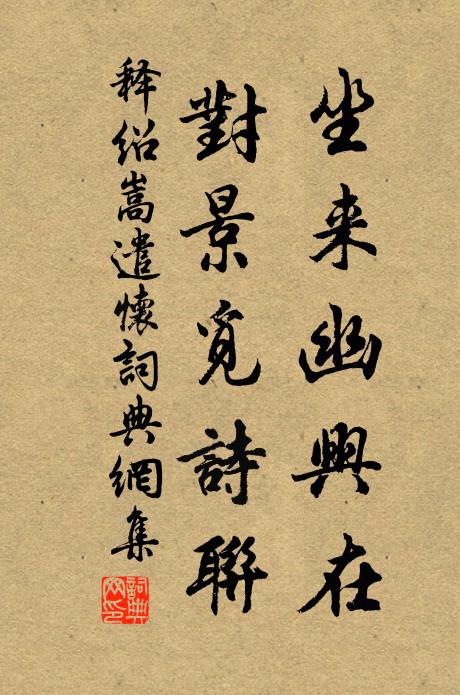 坐来幽興在
對景覓詩聯
释绍嵩遣懷詞典網集
詞典网印